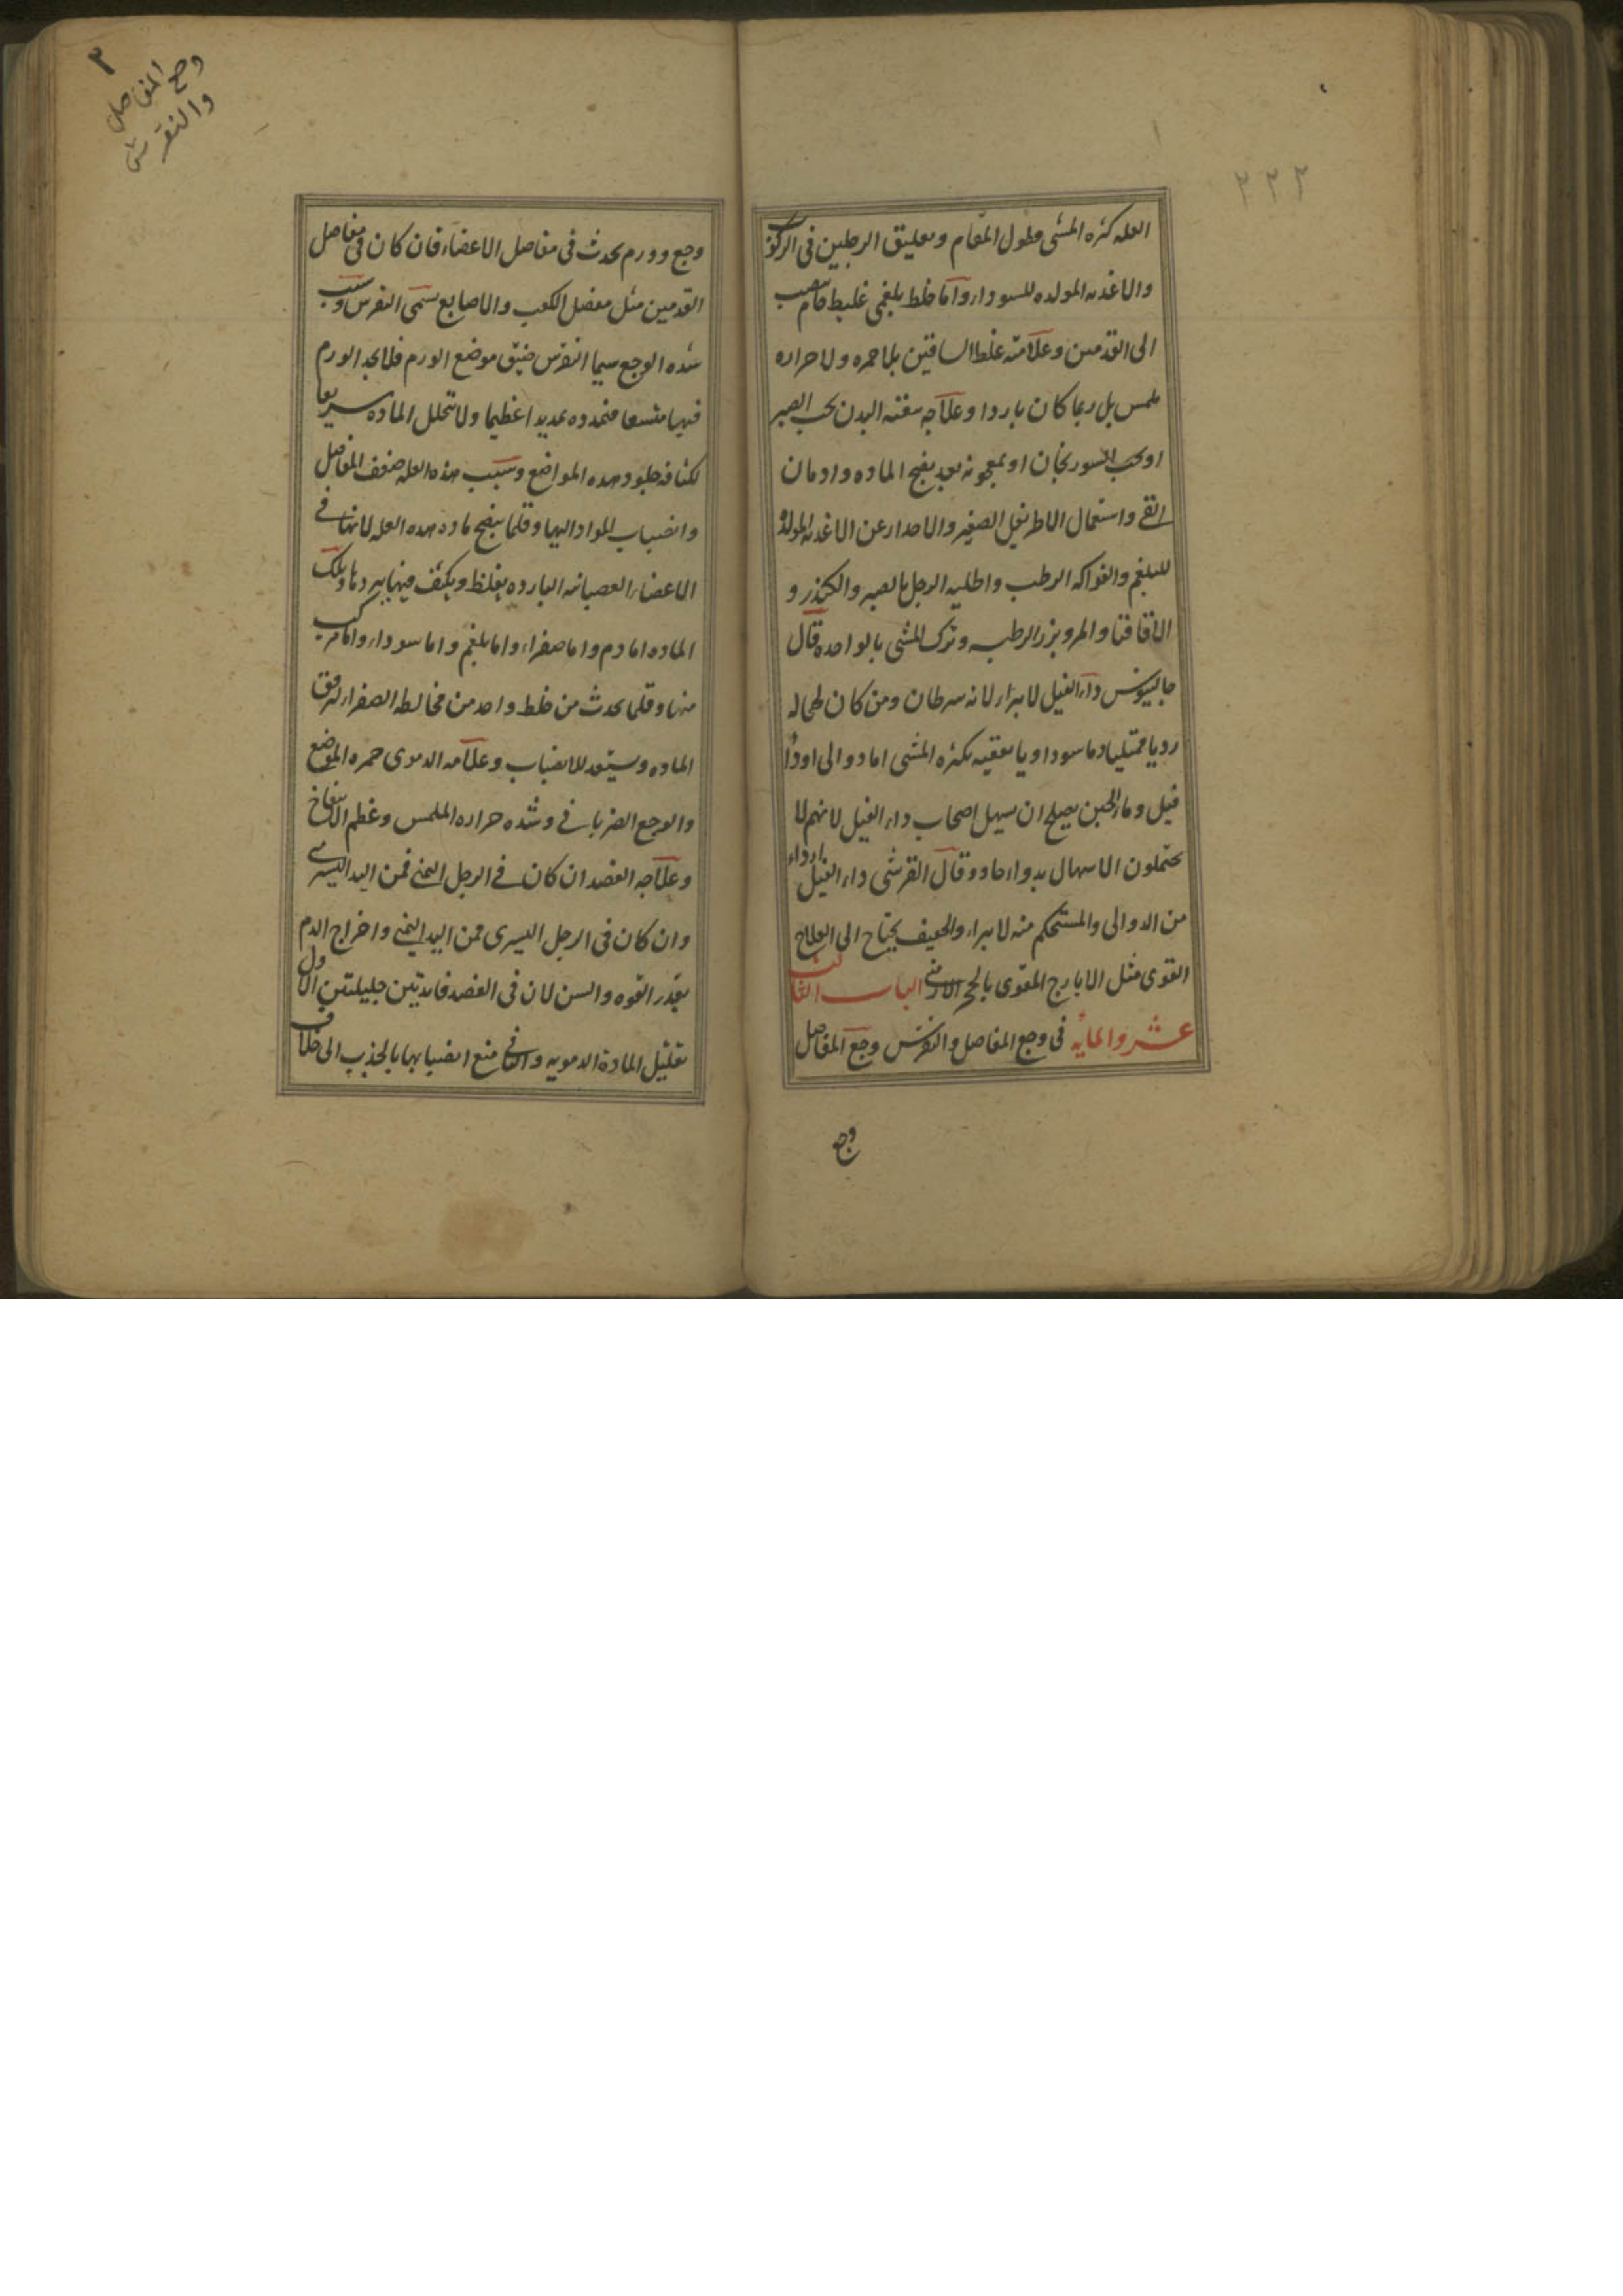 ٢٢٢
العله كثره المشى وطول المقام وتعليق الرجلين فى الركوب
والاغديه المولده للسوداء واما خلط بلغمى غليظ خام ينصب
الى القدمين وعلامته غلظ الساقين بلا حمره ولا حراره
ملمس بل ربما كان باردا وعلاجه تنقيه البدن بحب الصبر
او بحب السورنجان او بمعجونه بعد نضج الماده وادمان
القى واستعمال الاطريفل الصغير والاحدار عن الاغديه المولده
للبلغم والفواكه الرطب واطليه الرجل بالصبر والكندر و
الاقاقيا والمر وبزر الرطبه وترك المشى بالواحده قال
جالينوس داء الفيل لا يبرا لانه سرطان ومن كان طحاله
رديا ممتليا دما سوداويا يعقبه بكثره المشى اما دوالى او داء
فيل وماء الجبن يصلح ان يسهل اصحاب داء الفيل لانهم لا
يحتملون الاسهال بدواء حاد وقال القرشى داء الفيل اردا
من الدوالى والمستحكم منه لا يبرا والخفيف يحتاج الى العلاج
القوى مثل الايارج المقوى بالحجر الارمنى الباب الثالث
عشر والمايه فى وجع المفاصل والنقرس وجع المفاصل
وجع
٣
وجع المفاصل
والنقرس
وجع وورم يحدث فى مفاصل الاعضاء فان كان فى مفاصل
القدمين مثل مفصل الكعب والاصابع يسمى النقرس وسبب
شده الوجع سيما النقرس ضيق موضع الورم فلا يجد الورم
فيها متسعا فتمدده تمديدا عظيما ولا تتحلل الماده سريعا
لكثافه جلود هذه المواضع وسبب هذه العله ضعف المفاصل
وانصباب المواد اليها وقلما ينضج ماده هذه العله لانها فى
الاعضاء العصبانيه البارده يغلظ ويكثف فيها ببردها وتلك
الماده اما دم واما صفراء واما بلغم واما سوداء واما مركب
منها وقلما يحدث من خلط واحد من مخالطه الصفراء لترقق
الماده وستعد للانصباب وعلامه الدموى حمره الموضع
والوجع الضربانى وشده حراره الملمس وعظم الانتفاخ
وعلاجه الفصد ان كان فى الرجل اليمنى فمن اليد اليسرى
وان كان فى الرجل اليسرى فمن اليد اليمنى واخراج الدم
بقدر القوه والسن لان فى الفصد فايدتين جليلتين الاول
تقليل المادة الدمويه والثانى منع انصبابها بالجذب الى خلاف